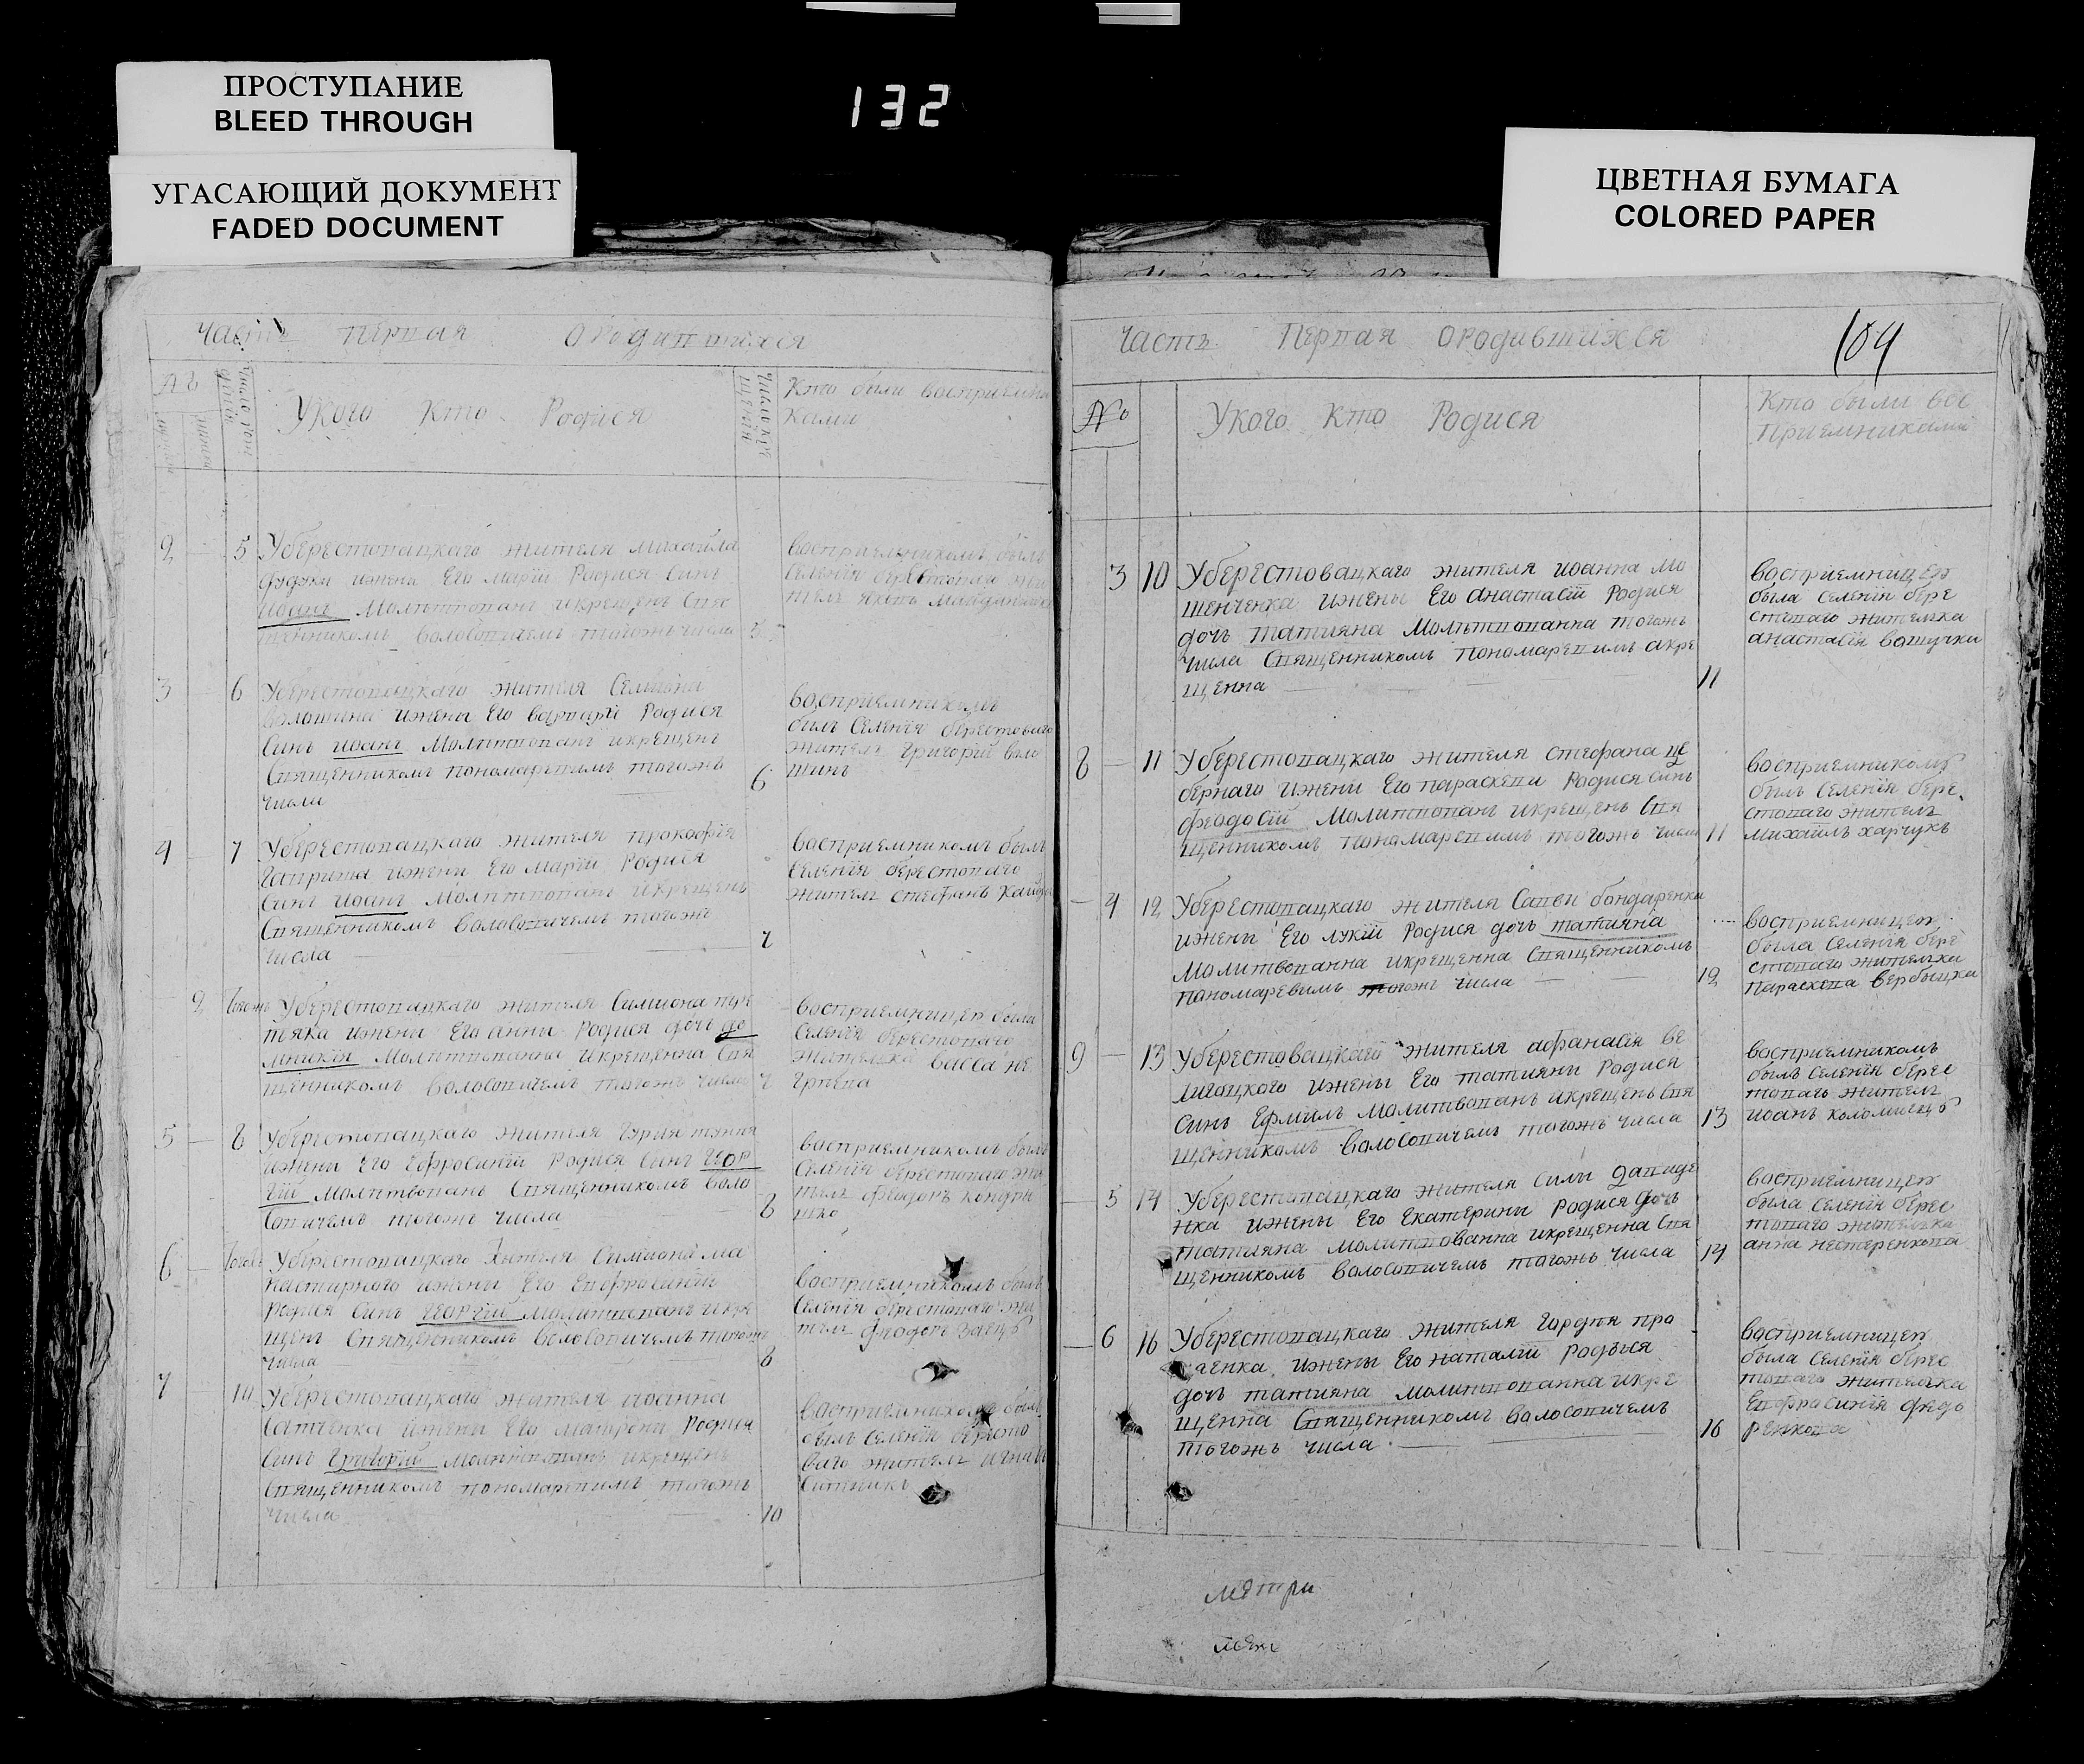 ПРОСТУПАНИЕ
BLEED THROUGH
УГАСАЮЩИЙ ДОКУМЕНТ
FADED DOCUMENT
132
ЦВЕТНАЯ БУМАГА
COLORED PAPER
Часть первая ородившихся
Укого Кто Родися
Кто были восприемни
ками
2 5 Уберестовацкаго жителя михайла
ижени Его марій Родися Синъ
иоанъ Молитвованъ икрещенъ Свя
щенникомъ волосовичемъ тогожъ числа 5
восприемникомъ былъ
Селенія берестоваго жи
тель
3 6 Уберестовацкаго жителя Семиона
волошина ижени Его варвари Родися
Синъ иоанъ Молитвованъ икрещенъ
Священникомъ пономаревимъ тогожъ
числа 6
восприемникомъ
билъ Селенія берестоваго
житель григорій воло
шинъ
4 7 Уберестовацкаго жителя прокофія
гавриша ижени Его Марій Родися
Синъ иоанъ Молитвованъ икрещенъ
Священникомъ волосовичемъ тогожъ
числа 7
восприемникомъ былъ
Селенія берестоваго
житель стефанъ
2 Тогожъ Уберестовацкаго жителя Симиона
тяка ижени Его анни Родися дочь до
мникія Молитвованна икрещенна Свя
щенникомъ волосовичемъ тогожъ числа 7
восприемницею была
Селенія берестоваго
жителка васса
5 8 Уберестовацкаго жителя гурия
ижени Его Ефросиній Родися Синъ геор
гій Молитвованъ Священникомъ воло
совичемъ тогожъ числа 8
восприемникомъ былъ
Селенія берестоваго жи
тель феодоръ кондра
шко
6 Тогожъ Уберестовацкаго жителя Симиона ма
ижени Его Евфросиній
Родися Синъ георгій Молитвованъ икре
щенъ Священникомъ волосовичемъ тогожъ
числа 8
восприемникомъ былъ
Селенія берестоваго жи
тель феодоръ заецъ
7 10 Уберестовацкаго жителя иоанна
ижени Его матрони Родися
Синъ григорій Молитвованъ икрещенъ
Священникомъ пономаревимъ тогожъ
числа 10
восприемникомъ былъ
Селенія бересто
ваго житель
Ситникъ
Часть Первая ородившихся
109
№
Укого Кто Родися
Кто были вос
приемниками
3 10 Уберестовацкаго жителя иоанна мо
шенченка ижены Его анастасій Родися
дочь татияна Молитвованна тогожъ
числа Священникомъ пономаревимъ акре
щенна 11
восприемницею
была Селенія бере
стоваго жителка
анастасія вашучка
8 11 Уберестовацкаго жителя стефана це
бернаго ижени Его параскеви Родися Синъ
феодосій Молитвованъ икрещенъ Свя
щенникомъ пономаревимъ тогожъ числа 11
восприемникомъ
былъ Селенія бере
стоваго житель
Михаилъ харчукъ
4 12 Уберестовацкаго жителя Савви бондаренка
ижены Его лукій Родися дочь татияна
Молитвованна икрещенна Священникомъ
пономаревимъ тогожъ числа 12
восприемницею
была Селенія бере
стоваго жителка
параскева вербицка
9 13 Уберестовацкаго жителя афанасія ве
лигоцкого ижены Его татияни Родися
Синъ Ермилъ Молитвованъ икрещенъ Свя
щенникомъ волосовичемъ тогожъ числа 13
восприемникомъ
былъ Селенія берес
товаго житель
иоанъ коломиецъ
5 14 Уберестовацкаго жителя Сили давиде
нка ижены Его Екатерини Родися дочь
татияна молитвованна икрещенна Свя
щенникомъ волосовичемъ тогожъ числа 14
восприемницею
была Селенія берес
товаго жителька
анна нестеренкова
6 16 Уберестовацкаго жителя гордія про
ижены Его наталій Родися
дочь татияна молитвованна икре
щенна Священникомъ волосовичемъ
тогожъ числа 16
восприемницею
была Селенія берес
товаго жителька
Евфросинія федо
ренкова
метри